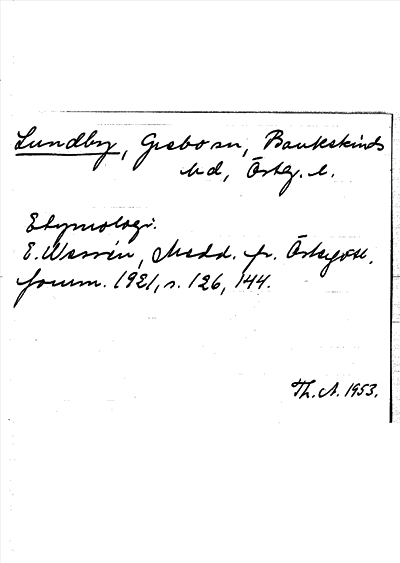 Lundby, Grebo sn, Bankekinds
hd, Östg. l.
Etymologi.
E. Wessén, Medd. fr. Östergötl.
fornm. 1921, s. 126, 144.
Th. A. 1953.